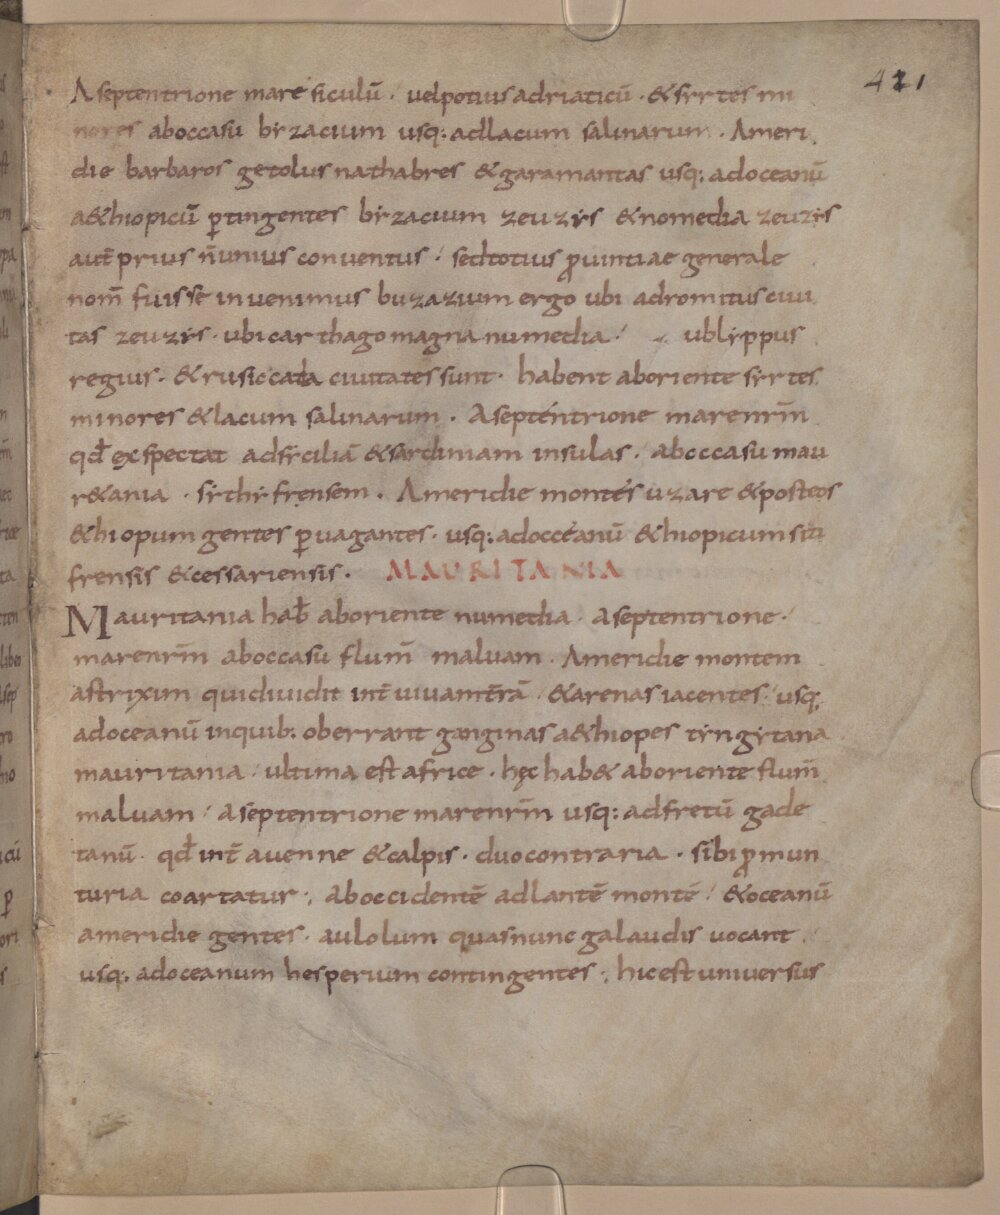 421
Aseptentrione mare siculū · uelpotius adriaticū · &syrtes mi
nores aboccasu byzacium usq: adlacum salinarum · Ameri
die barbaros getolus nathabres &garamantas usq: adoceanū
a&hiopicū ꝑtingentes byzacium zeuzys &nomedia zeuzys
aut̄ prius n̄unius conuentus · sedtotius ꝓuintiae generale
nom̄ fuisse inuenimus buzazium ergo ubi adromitus ciui
tas zeuzys · ubicarthagomagna numedia · ublyppus
regius · &rusiccada ciuitates sunt · habent aboriente syrtes
minores &lacum salinarum · Aseptentrione marenrm̄
qd̄ exspectat adsyciliā &sardiniam insulas · aboccasu mau
r&ania · sythyfrensem · Ameridie montes uzare &posteos
&hiopum gentes ꝑuagantes · usq: adocceanū &hiopicum siti
frensis &cessariensis · MAURITANIA
Mauritania hab̄ aboriente numedia · Aseptentrione ·
marenrm̄ aboccasu flum̄ maluam · Ameridie montem
astrixim quidiuidit int̄ uiuamt̄rā · &arenas iacentes · usq:
adoceanū inquib: oberrant ganginas a&hiopes tyngytana
mauritania · ultima est africe · hęc hab& aboriente flum̄
maluam · Aseptentrione marenrm̄ usq: adfretū gade
tanū · qd̄ int̄ auenne &calpis · duocontraria · sibi ꝓmun
turia coartatur · aboccidentē adlantē montē · &oceanū
ameridie gentes · aulolum quasnunc galaudis uocant
usq: adoceanum hesperium contingentes · hic est uniuersus